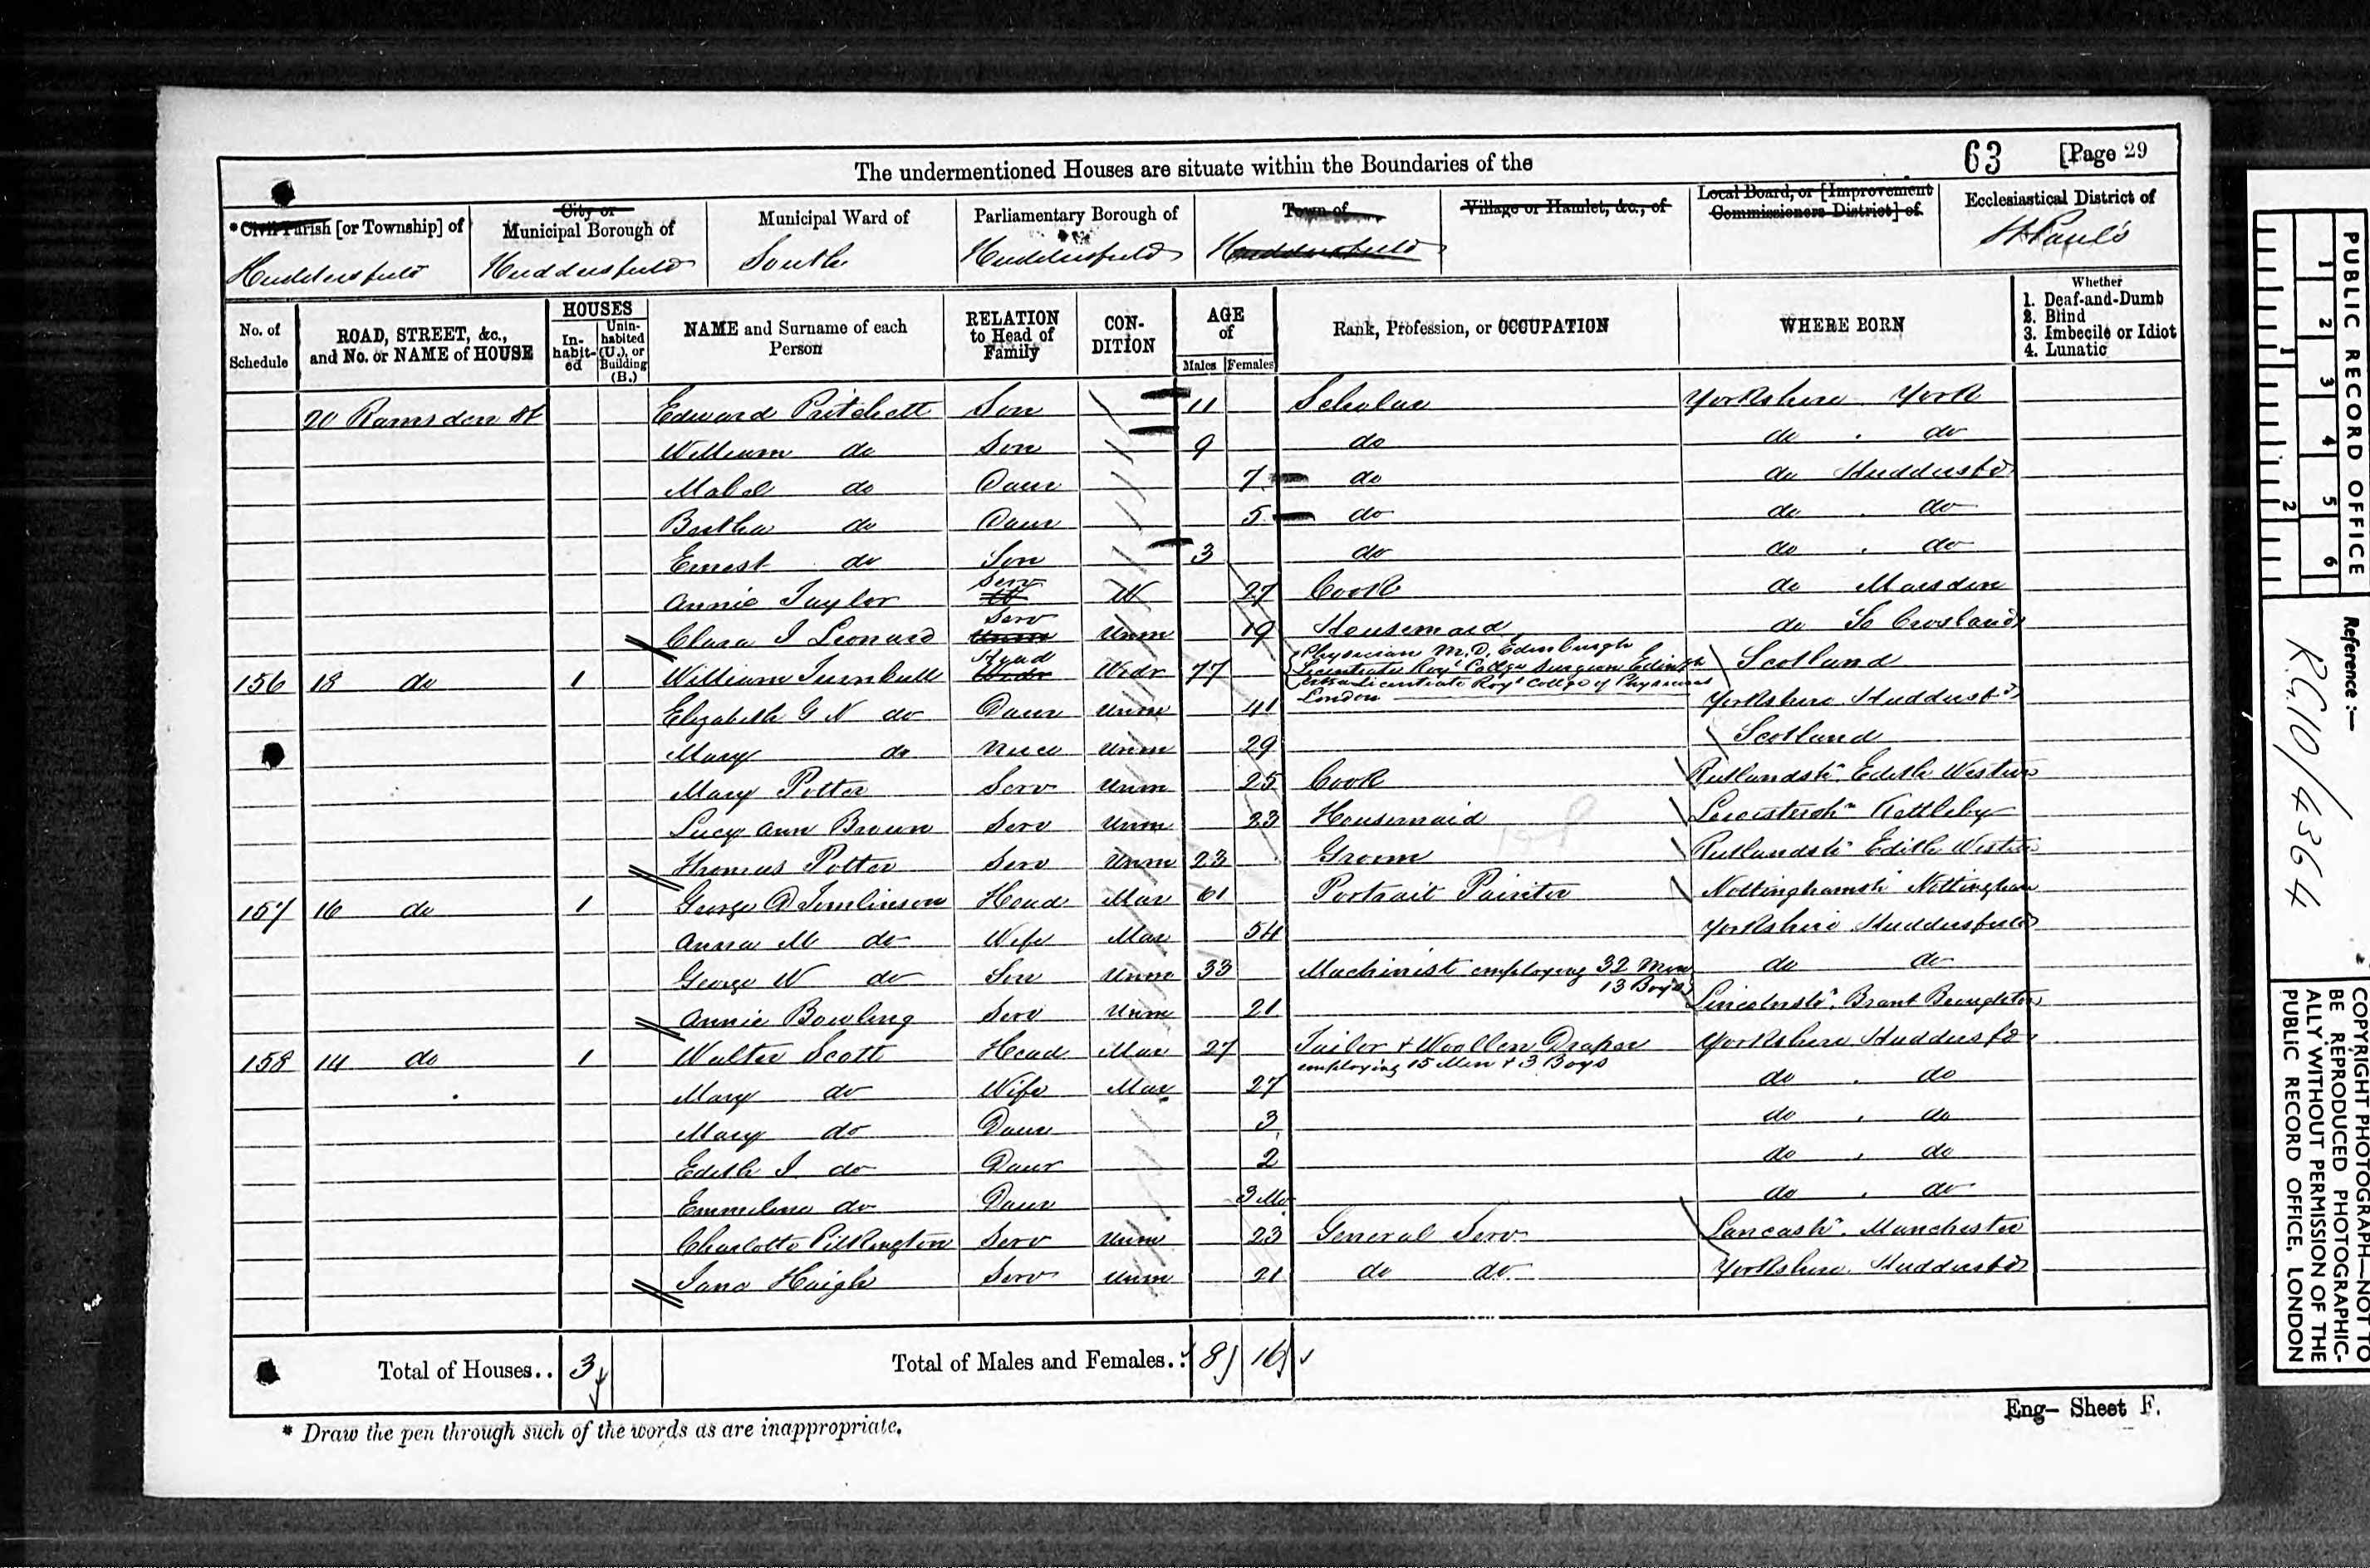 The undermentioned Houses are situate within the Boundaries of the
63 [Page 29
*Civil Parish [or Township] of
City or Municipal Borough of
Municipal Ward of
Parliamentary Borough of
Town of
Village or Hamlet, &c., of
Local Board, or [Improvement Commissioners District] of
Ecclesiastical District of
Huddersfield Huddersfield South Huddersfield Huddersfield St Paul's
No. of Schedule
ROAD, STREET, &c., and No. or NAME of HOUSE
HOUSES
In-habit-ed
Unin-habited (U.), or Building (B.)
NAME and Surname of each Person
RELATION to Head of Family
CON-DITION
AGE of
Males Females
Rank, Profession, or OCCUPATION
WHERE BORN
Whether
1. Deaf-and-Dumb
2. Blind
3. Imbecile or Idiot
4. Lunatic
20 Ramsden St Edward Pritchett Son 11 Scholar Yorkshire York
William do Son 9 do do do
Mabel do Daur 7 do do Huddersfd
Bertha do Daur 5 do do do
Ernest do Son 3 do do do
Annie Taylor Serv W 27 Cook do Marsden
Clara I Leonard Serv Unm 19 Housemaid do So Crosland
156 18 do 1 William Turnbull Head Widr 77 Physician M.D. Edinburgh Scotland
Licentiate Royl College Surgeon Edinbh
Extra Licentiate Royl College of Physicians
London
Elizabeth G N do Daur Unm 41 Yorkshire Huddersfd
Mary do Niece Unm 29 Scotland
Mary Potter Serv Unm 25 Cook Rutlandsh Edith Weston
Lucy Ann Brown Serv Unm 23 Housemaid Leicestersh Kettleby
Thomas Potter Serv Unm 23 Groom Rutlandsh Edith Weston
157 16 do 1 George D Tomlinson Head Mar 61 Portrait Painter Nottinghamsh Nottingham
Anna M do Wife Mar 54 Yorkshire Huddersfield
George W do Son Unm 33 Machinist employing 32 Men do do
13 Boys
Annie Bowling Serv Unm 21 Lincolnsh Brant Broughton
158 14 do 1 Walter Scott Head Mar 27 Tailor & Woollen Draper Yorkshire Huddersfd
employing 15 Men & 3 Boys
Mary do Wife Mar 27 do do
Mary do Daur 3 do do
Edith I do Daur 2 do do
Emmeline do Daur 3 Mo do do
Charlotte Pilkington Serv Unm 23 General Serv Lancash Manchester
Jane Haigh Serv Unm 21 do do Yorkshire Huddersfd
Total of Houses.. 3
Total of Males and Females.. 8 16
Eng- Sheet F.
* Draw the pen through such of the words as are inappropriate.
PUBLIC RECORD OFFICE
1 2 3 4 5 6
1 2
Reference :-
RG10/4364
COPYRIGHT PHOTOGRAPH—NOT TO
BE REPRODUCED PHOTOGRAPHIC-
ALLY WITHOUT PERMISSION OF THE
PUBLIC RECORD OFFICE, LONDON